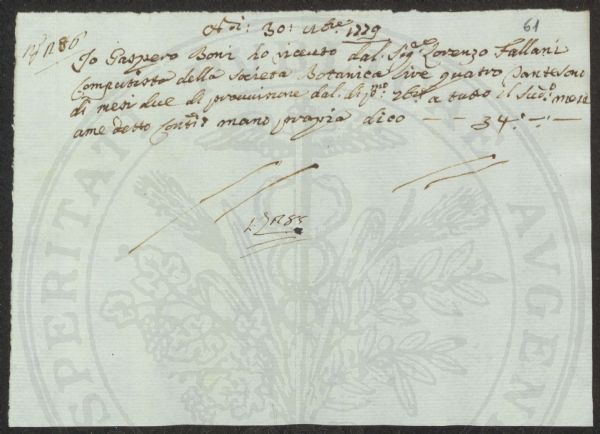 Adi: 30: 9bre 1779
61
N° 186
Io Gaspero Boni ho riceuto dal Sigr Lorenzo Fallani
Computista della Societa Botanica lire quatro Dante sono
di mesi due di prouuisione dal dì pmo 76re a tutto il Sudo mese
ame detto Conti mano propria dico — — 34: —: —
PROSPERITATI
AVGENDAE